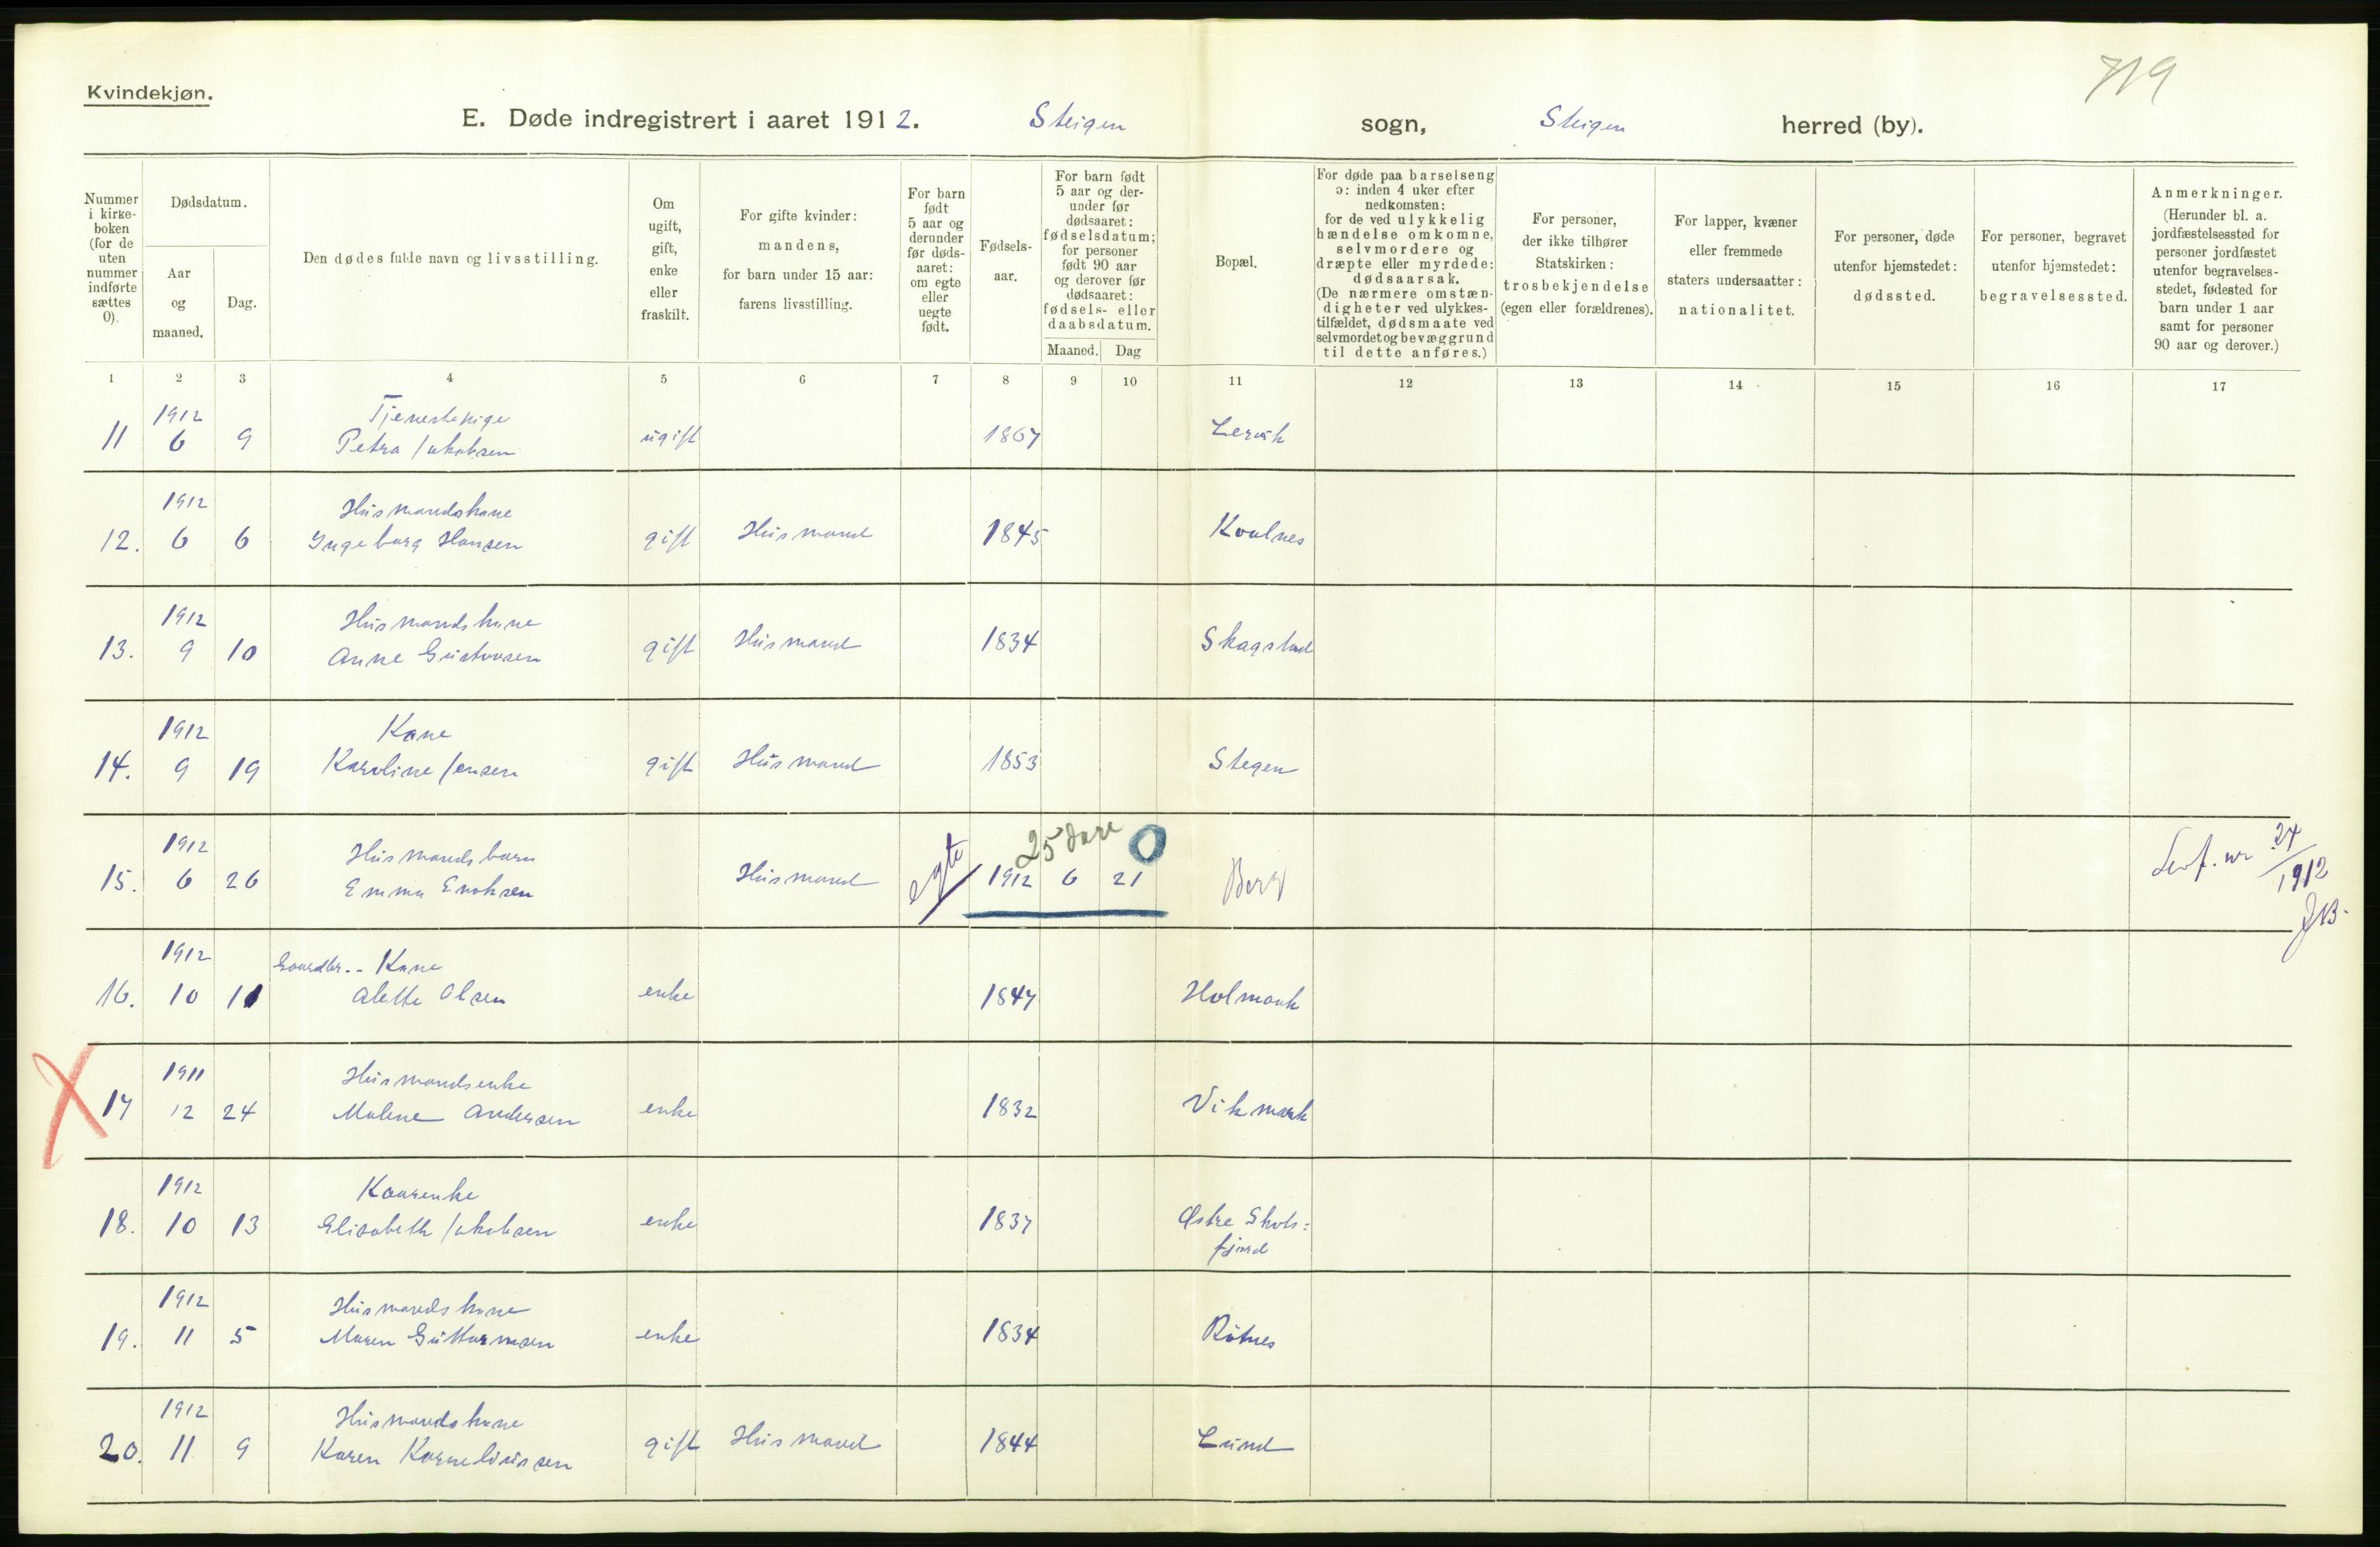 719
Kvindekjøn.
E. Døde indregistrert i aaret 1912. Steigen sogn, Steigen herred (by).
Nummer i kirke-boken (for de uten nummer indførte sættes 0).
Dødsdatum.
Aar og maaned.
Dag.
Den dødes fulde navn og livsstilling.
Om ugift, gift, enke eller fraskilt.
For gifte kvinder: mandens, for barn under 15 aar: farens livsstilling.
For barn født 5 aar og derunder før døds-aaret: om egte eller uegte født.
Fødsels-aar.
For barn født 5 aar og der-under før dødsaaret: fødselsdatum; for personer født 90 aar og derover før dødsaaret: fødsels- eller daabsdatum.
Maaned. Dag
Bopæl.
For døde paa barselseng ɔ: inden 4 uker efter nedkomsten: for de ved ulykkelig hændelse omkomne, selvmordere og dræpte eller myrdede: dødsaarsak. (De nærmere omstæn-digheter ved ulykkes-tilfældet, dødsmaate ved selvmordet og bevæggrund til dette anføres.)
For personer, der ikke tilhører Statskirken: trosbekjendelse (egen eller forældrenes).
For lapper, kvæner eller fremmede staters undersaatter: nationalitet.
For personer, døde utenfor hjemstedet: dødssted.
For personer, begravet utenfor hjemstedet: begravelsessted.
Anmerkninger. (Herunder bl. a. jordfæstelsessted for personer jordfæstet utenfor begravelses-stedet, fødested for barn under 1 aar samt for personer 90 aar og derover.)
1 2 3 4 5 6 7 8 9 10 11 12 13 14 15 16 17
1912 Tjenestepige
11 6 9 Petra Jakobsen ugift 1867 Lervik
1912 Husmandskone
12. 6 6 Ingeborg Hansen gift Husmand 1845 Kvalnes
1912 Husmandskone
13. 9 10 Anne Gustavsen gift Husmand 1834 Skagstad
1912 Kone
14. 9 19 Karoline Jensen gift Husmand 1853 Stegen
1912 Husmandsbarn 25 0
15. 6 26 Emma Enoksen Husmand egte 1912 6 21 Borg 24/1912
1912 Gaardbr.- Kone
16. 10 11 Alette Olsen enke 1847 Holmaak
1911 Husmandsenke
17 12 24 Malene Andersen enke 1832 Vikmark
1912 Kaarenke
18. 10 13 Elisabeth Jakobsen enke 1837 Østre Skots:
fjord
1912 Husmandskone
19. 11 5 Maren Guttormsen enke 1834 Rötnes
1912 Husmandskone
20. 11 9 Karen Korneliussen gift Husmand 1844 Lund